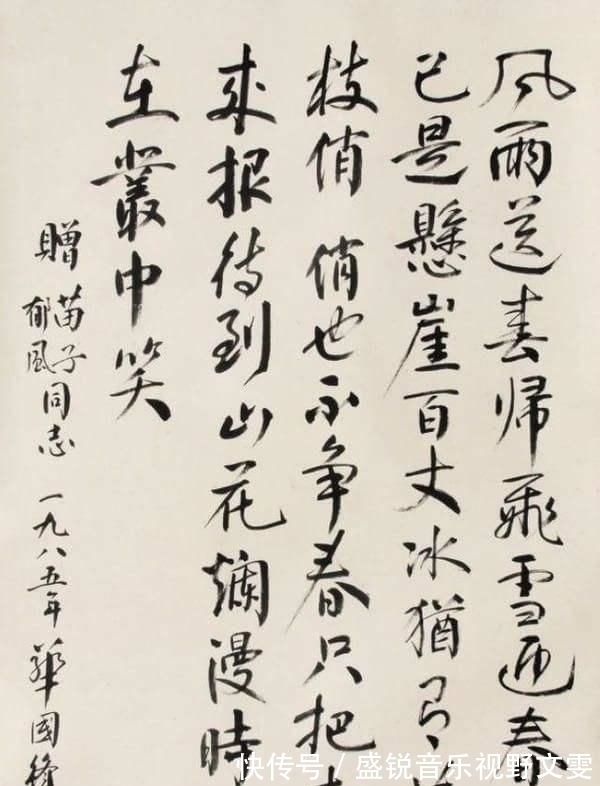 风雨送春歸飛雪迎春
已是懸崖百丈冰猶有
枝俏 俏也不争春只把
來报待到山花爛漫時
在叢中笑
贈苗子郁风同志 一九八五年 華國鋒
快传号 / 盛锐音乐视野文雯